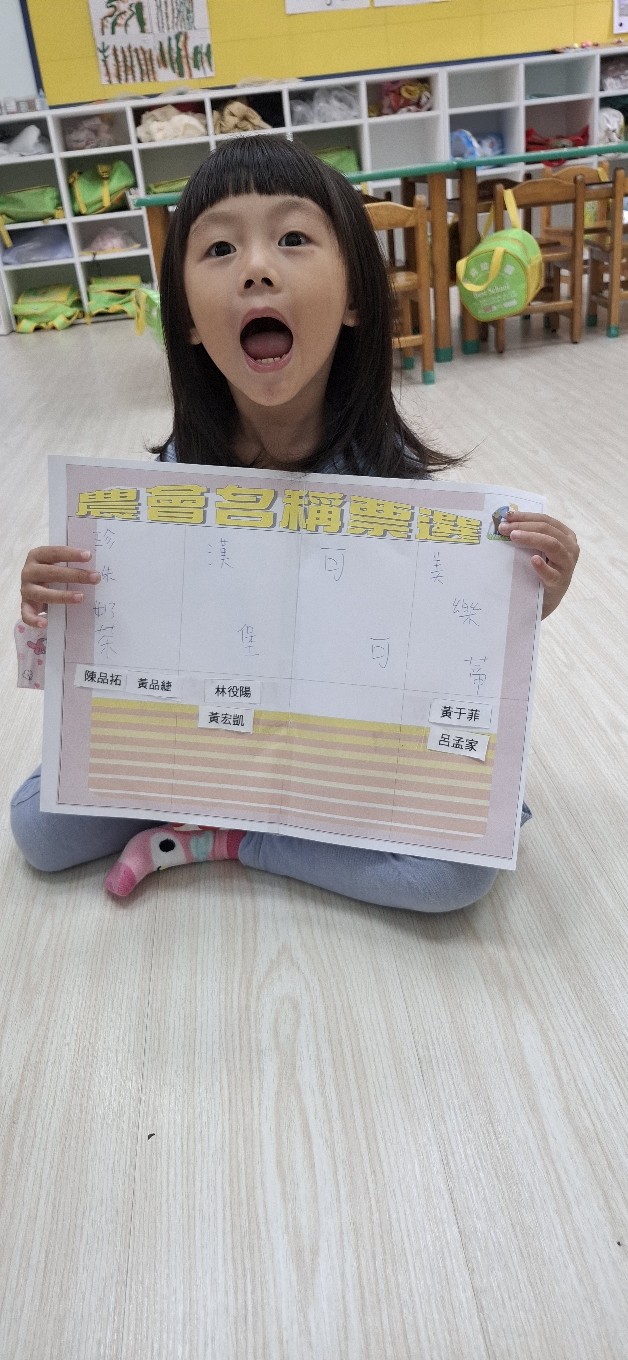 農會名稱票選
珍珠奶茶
漢堡
可可
美樂蒂
陳品拓 黃品緁
林役陽
黃宏凱
黃于菲
呂孟家
Best School